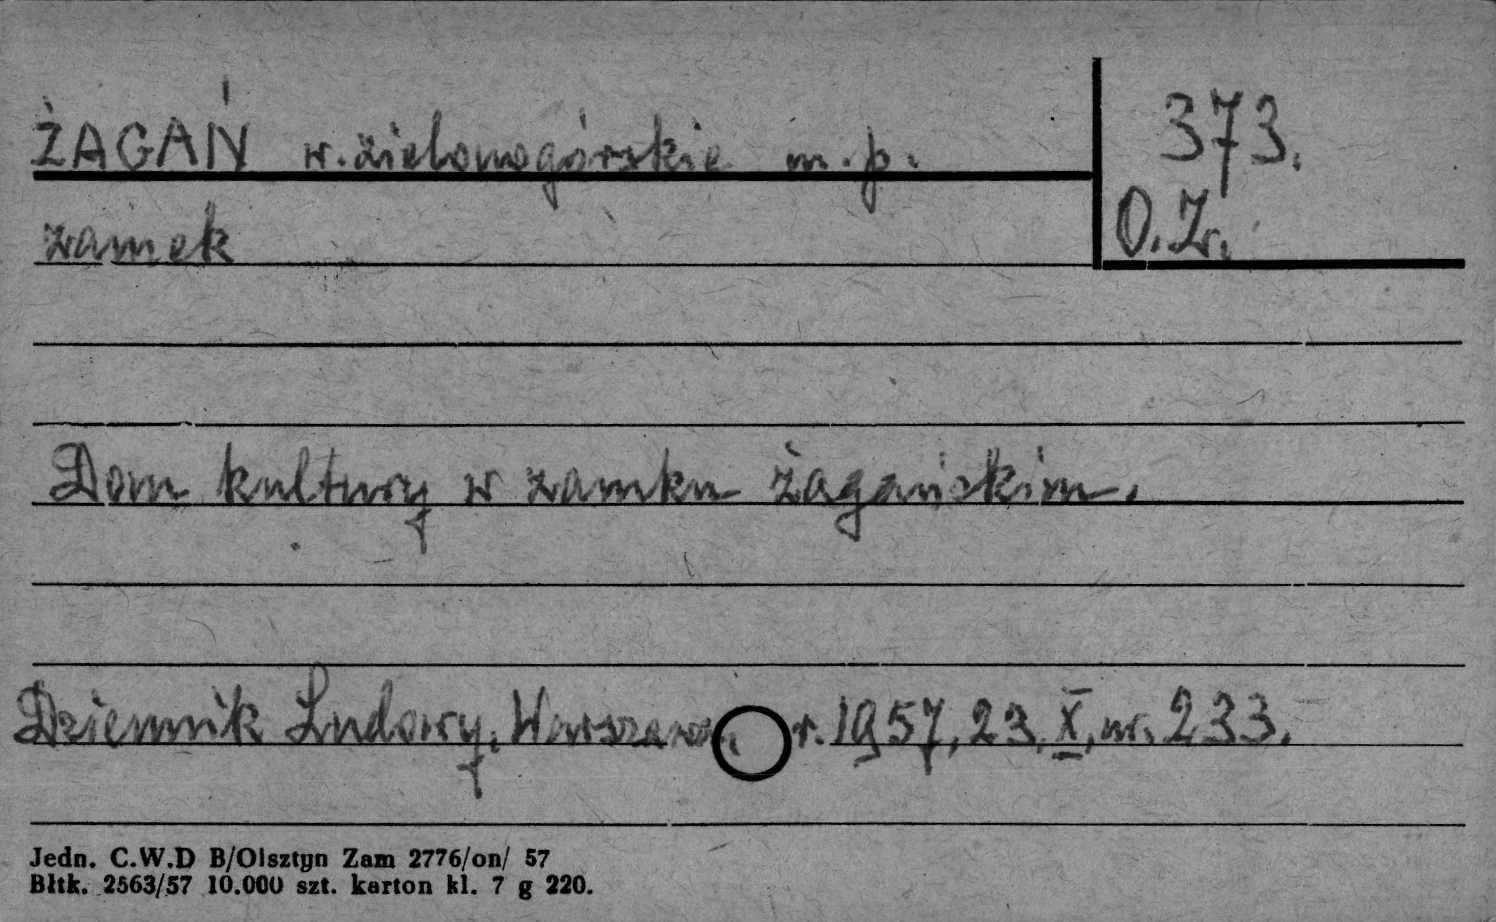 ŻAGAŃ w. zielonogórskie m. p.
373.
zamek
O. Zr.
Dom kultury w zamku żagańskim.
Dziennik Ludowy, Warszawa, r. 1957, 23. X, nr. 233.
Jedn. C.W.D B/Olsztyn Zam 2776/on/ 57
Błtk. 2563/57 10.000 szt. karton kl. 7 g 220.